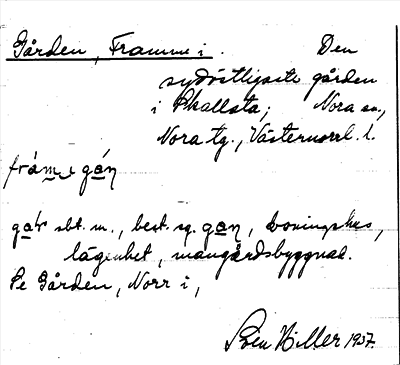 Gården, Framme i. Den
sydöstligaste gården
i Skallsta; Nora sn.,
Nora tg., Västernorrl. l.
främ e gán
gaɫr sbt. m., best. sg. gan, boningshus,
lägenhet, mangårdsbyggnad.
Se Gården, Norr i,
Sven Hiller 1937.